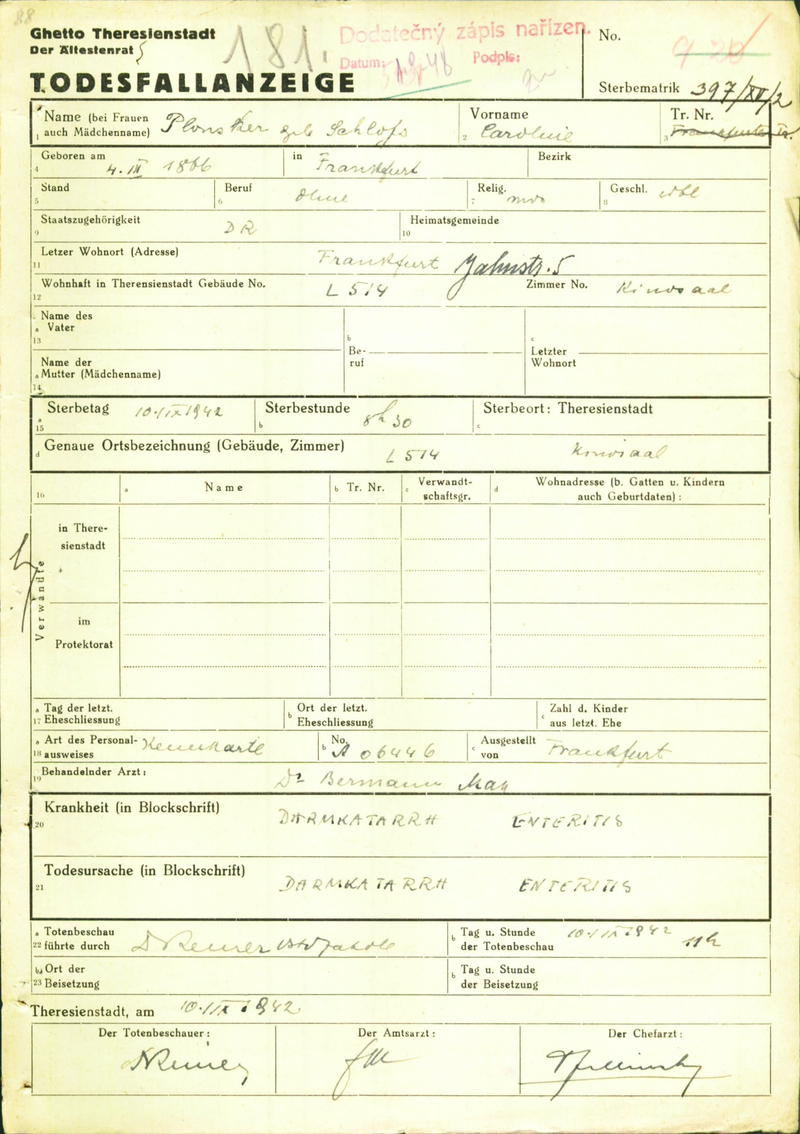 88
Ghetto Theresienstadt
Der Ältestenrat
181.
Dodatečný zápis nařízen.
Datum:
Podpis:
No.
TODESFALLANZEIGE
Sterbematrik 397/XI/2
Name (bei Frauen
1 auch Mädchenname)
Plonsker geb
Vorname
2 Caroline
Tr. Nr.
3
Geboren am
4 4. III 1866
in Frankfurt
Bezirk
Stand
5
Beruf
6 ohne
Relig.
7 mos
Geschl.
8 wbl
Staatszugehörigkeit
9 DR
Heimatsgemeinde
10
Letzer Wohnort (Adresse)
11 Frankfurt Jahnstr. 5
Wohnhaft in Therensienstadt Gebäude No.
12 L 514
Zimmer No. Kinosaal
Name des
a Vater
13
b
Be-
ruf
c
Letzter
Wohnort
Name der
a Mutter (Mädchenname)
14
Sterbetag 10./IX 1942
a
15
Sterbestunde 8h 30
b
Sterbeort: Theresienstadt
c
Genaue Ortsbezeichnung (Gebäude, Zimmer)
d L 514 Kinosaal
16
a Name
b Tr. Nr.
c Verwandt-
schaftsgr.
d Wohnadresse (b. Gatten u. Kindern
auch Geburtdaten) :
Verwandte
in There-
sienstadt
im
Protektorat
a Tag der letzt.
17 Eheschliessung
b Ort der letzt.
Eheschliessung
c Zahl d. Kinder
aus letzt. Ehe
a Art des Personal-
18 ausweises Kennkarte
b No. A 06446
c Ausgestellt
von Frankfurt
19 Behandelnder Arzt: Dr Bermann Max
Krankheit (in Blockschrift)
20 DARMKATARRH ENTERITIS
Todesursache (in Blockschrift)
21 DARMKATARRH ENTERITIS
a Totenbeschau
22 führte durch
b Tag u. Stunde
der Totenbeschau 10./IX 1942 11h
a Ort der
23 Beisetzung
b Tag u. Stunde
der Beisetzung
Theresienstadt, am 10./IX 1942
Der Totenbeschauer:
Der Amtsarzt:
Der Chefarzt: